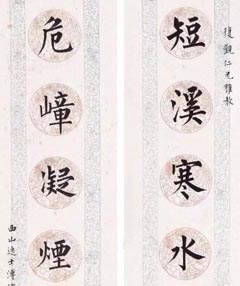 復觀仁兄雅教
短溪寒水
危嶂凝煙
西山逸士溥